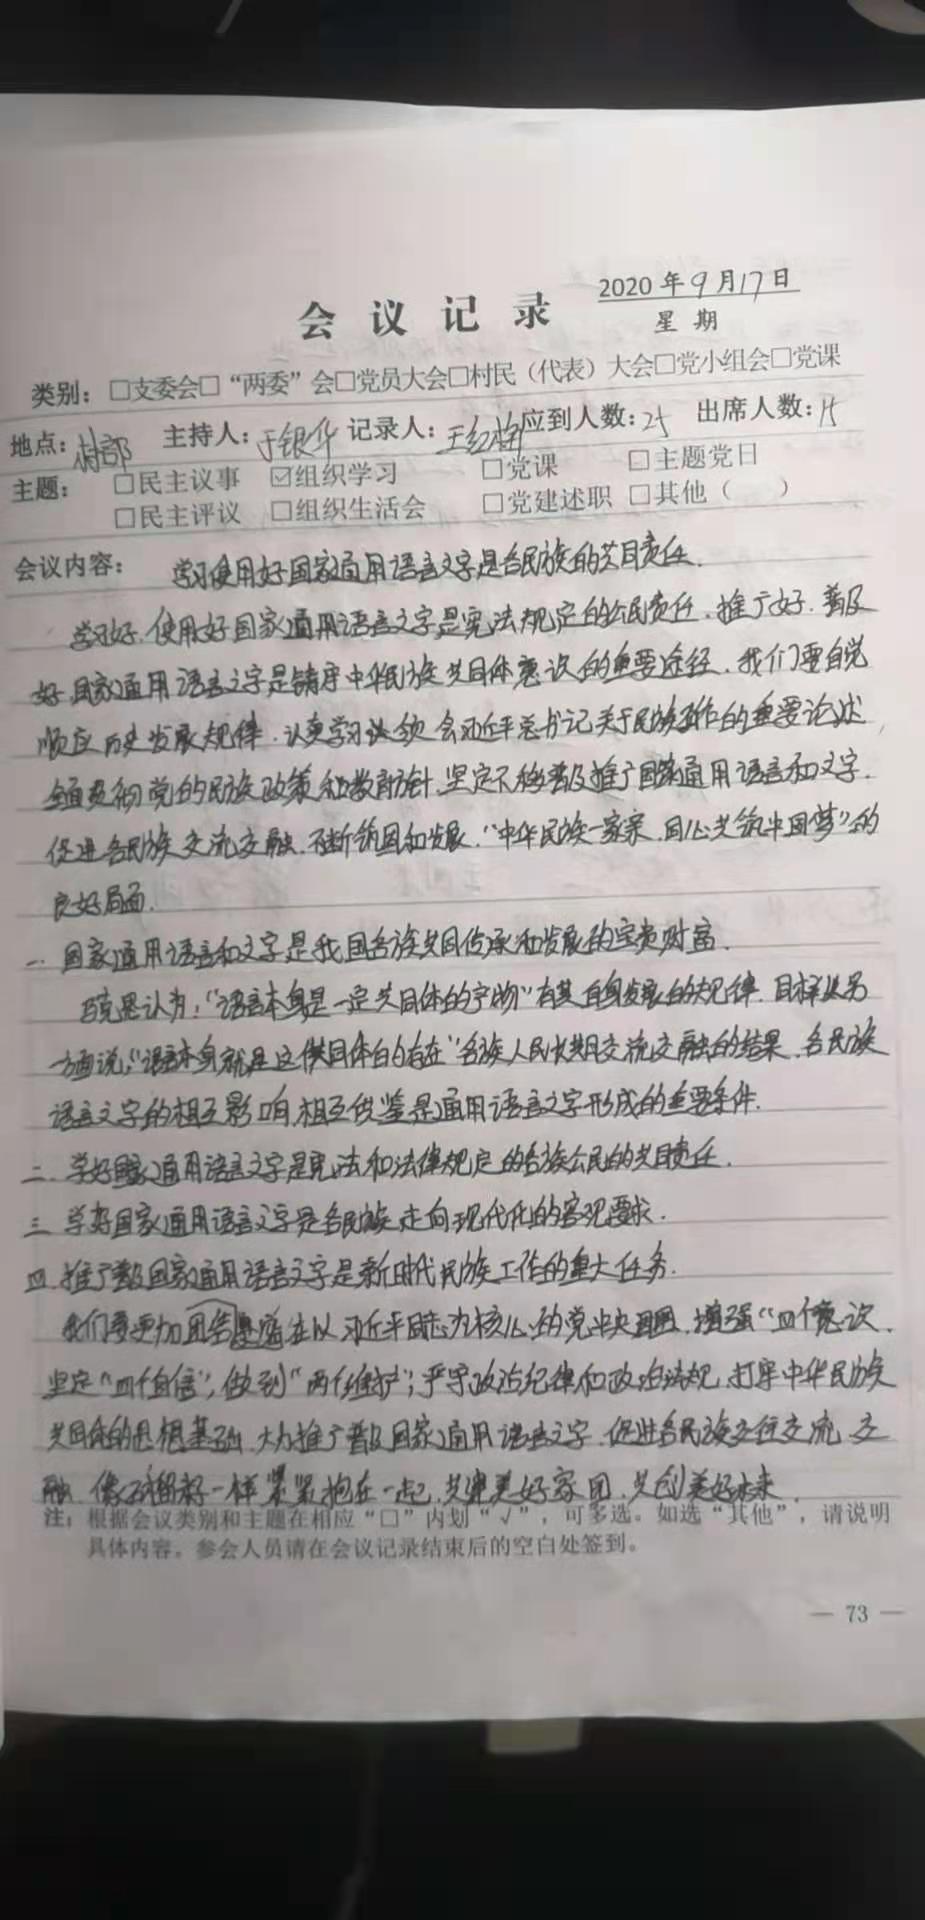 会议记录
2020年9月17日
星期
类别：□支委会□“两委”会□党员大会□村民（代表）大会□党小组会□党课
地点：村部 主持人：于银华 记录人：王红梅 应到人数：25 出席人数：15
主题：□民主议事 ☑组织学习 □党课 □主题党日
□民主评议 □组织生活会 □党建述职 □其他（ ）
会议内容： 学习使用好国家通用语言文字是各民族的共同责任.
学习好.使用好国家通用语言文字是宪法规定的公民责任.推广好.普及
好国家通用语言文字是铸牢中华民族共同体意识的重要途径.我们要自觉
顺应历史发展规律.认真学习领会习近平总书记关于民族工作的重要论述
全面贯彻党的民族政策和教育方针.坚定不移普及推广国家通用语言和文字.
促进各民族交流交融.不断巩固和发展.“中华民族一家亲.同心共筑中国梦”的
良好局面.
一.国家通用语言和文字是我国各族共同传承和发展的宝贵财富.
马克思认为：“语言本身是一定共同体的产物”有其自身发展的规律.同样从另
一方面说，“语言本身就是这个共同体的存在”各族人民长期交流交融的结果.各民族
语言文字的相互影响.相互借鉴是通用语言文字形成的重要条件.
二.学好国家通用语言文字是宪法和法律规定的各族公民的共同责任.
三.学好国家通用语言文字是各民族走向现代化的客观要求.
四.推广普及国家通用语言文字是新时代民族工作的重大任务.
我们要更加团结在以习近平同志为核心的党中央周围.增强“四个意识.
坚定“四个自信”；做到“两个维护”；严守政治纪律和政治法规.打牢中华民族
共同体的思想基础.大力推广普及国家通用语言文字.促进各民族交往交流.交
融.像石榴籽一样紧紧抱在一起.共建美好家园.共创美好未来.
注：根据会议类别和主题在相应“□”内划“√”，可多选。如选“其他”，请说明
具体内容。参会人员请在会议记录结束后的空白处签到。
— 73 —